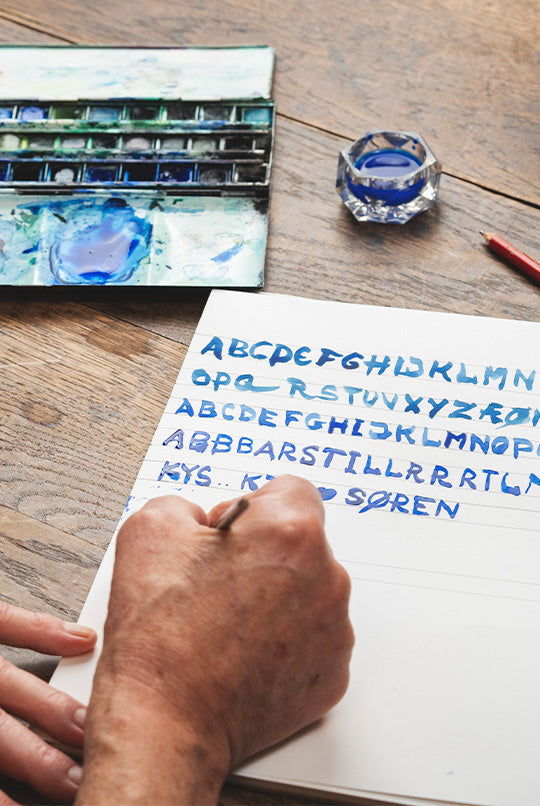 ABCDEFGHIJKLMN
OPQ RSTUVXYZÆØ
ABCDEFGHIJKLMNOP
ABBBARSTILLRRRTLN
KYS.. SØREN